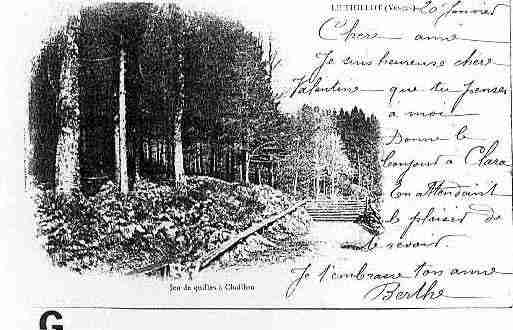 LE THILLOT (Vosges) 20 Janvier
Chère amie
Je suis heureuse chère
Valentine que tu penses
à moi
Donne le
bonjour à Clara
En attendant
le plaisir de
te revoir.
Je t'embrasse ton amie
Berthe
Jeu de quilles à Chaillon
G